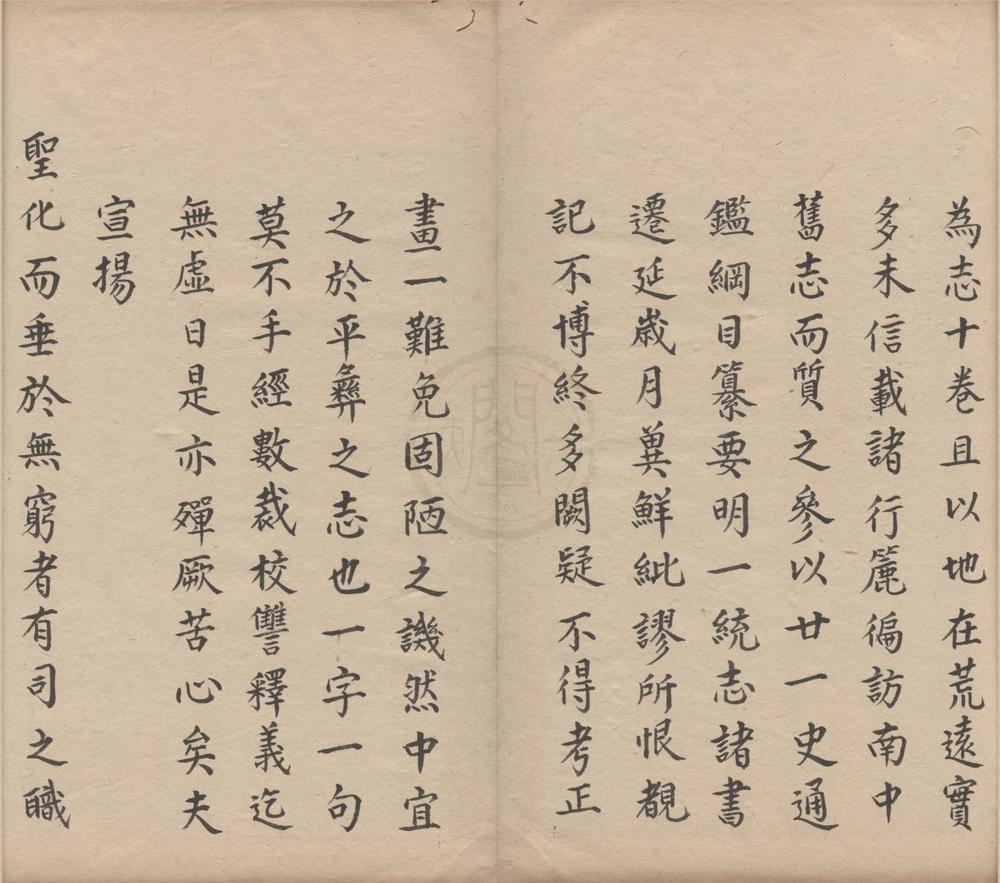 為志十巻且以地在荒遠實
多未信載諸行簏徧訪南中
舊志而質之參以廿一史通
鑑綱目纂要明一統志諸書
遷延歲月兾鮮紕謬所恨覩
記不博終多闕疑不得考正
畫一難免固陋之譏然中宜
之於平彝之志也一字一句
莫不手經數裁校讐釋義迄
無虛日是亦殫厥苦心矣夫
宣揚
聖化而垂於無窮者有司之職